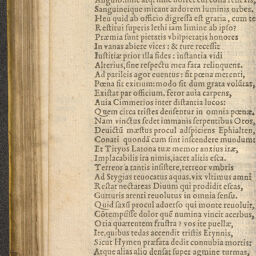 Sanguineique micant ardorem luminis orbes,
Heu quid ab officio digressa est gratia, cum te
Restitui superis lethi iam limine ab ipso?
Præmia sunt pietatis vbi? pietatis honores
In vanas abiere vices: & rure recessit
Iustitiæ prior illa fides: instantia vidi
Alterius, sine respectu mea fata relinquens.
Ad parileis agor euentus: fit pœna merenti,
Pœna sit exitium: modo sit dum grata volũtas,
Existat par officium. feror auia carpens,
Auia Cimmerios inter distantia lucos:
Quem circa tristes densentur in omnia pœnæ.
Nam vinctus sedet immanis serpentibus Otos,
Deuictũ mæstus procul adspiciens Ephialten,
Conati quondã cum sint inscendere mundum.
Et Tityos Latona tuæ memor anxius iræ,
Implacabilis ira nimis, iacet alitis esca.
Terreor à tantis insistere, terreor vmbris
Ad Stygias reuocatus aquas. vix vltimus amni
Restat nectareas Diuum qui prodidit escas,
Gutturis arenti reuolutus in omnia sensu.
Quid saxũ procul aduerso qui monte reuoluit,
Cõtempsisse dolor quẽ numina vincit acerbus,
Otia quærentem frustra? vos ite puellæ,
Ite, quibus tedas accendit tristis Erynnis,
Sicut Hymen præfata dedit connubia mortis:
Atque alias alio densat super agmine turmas,